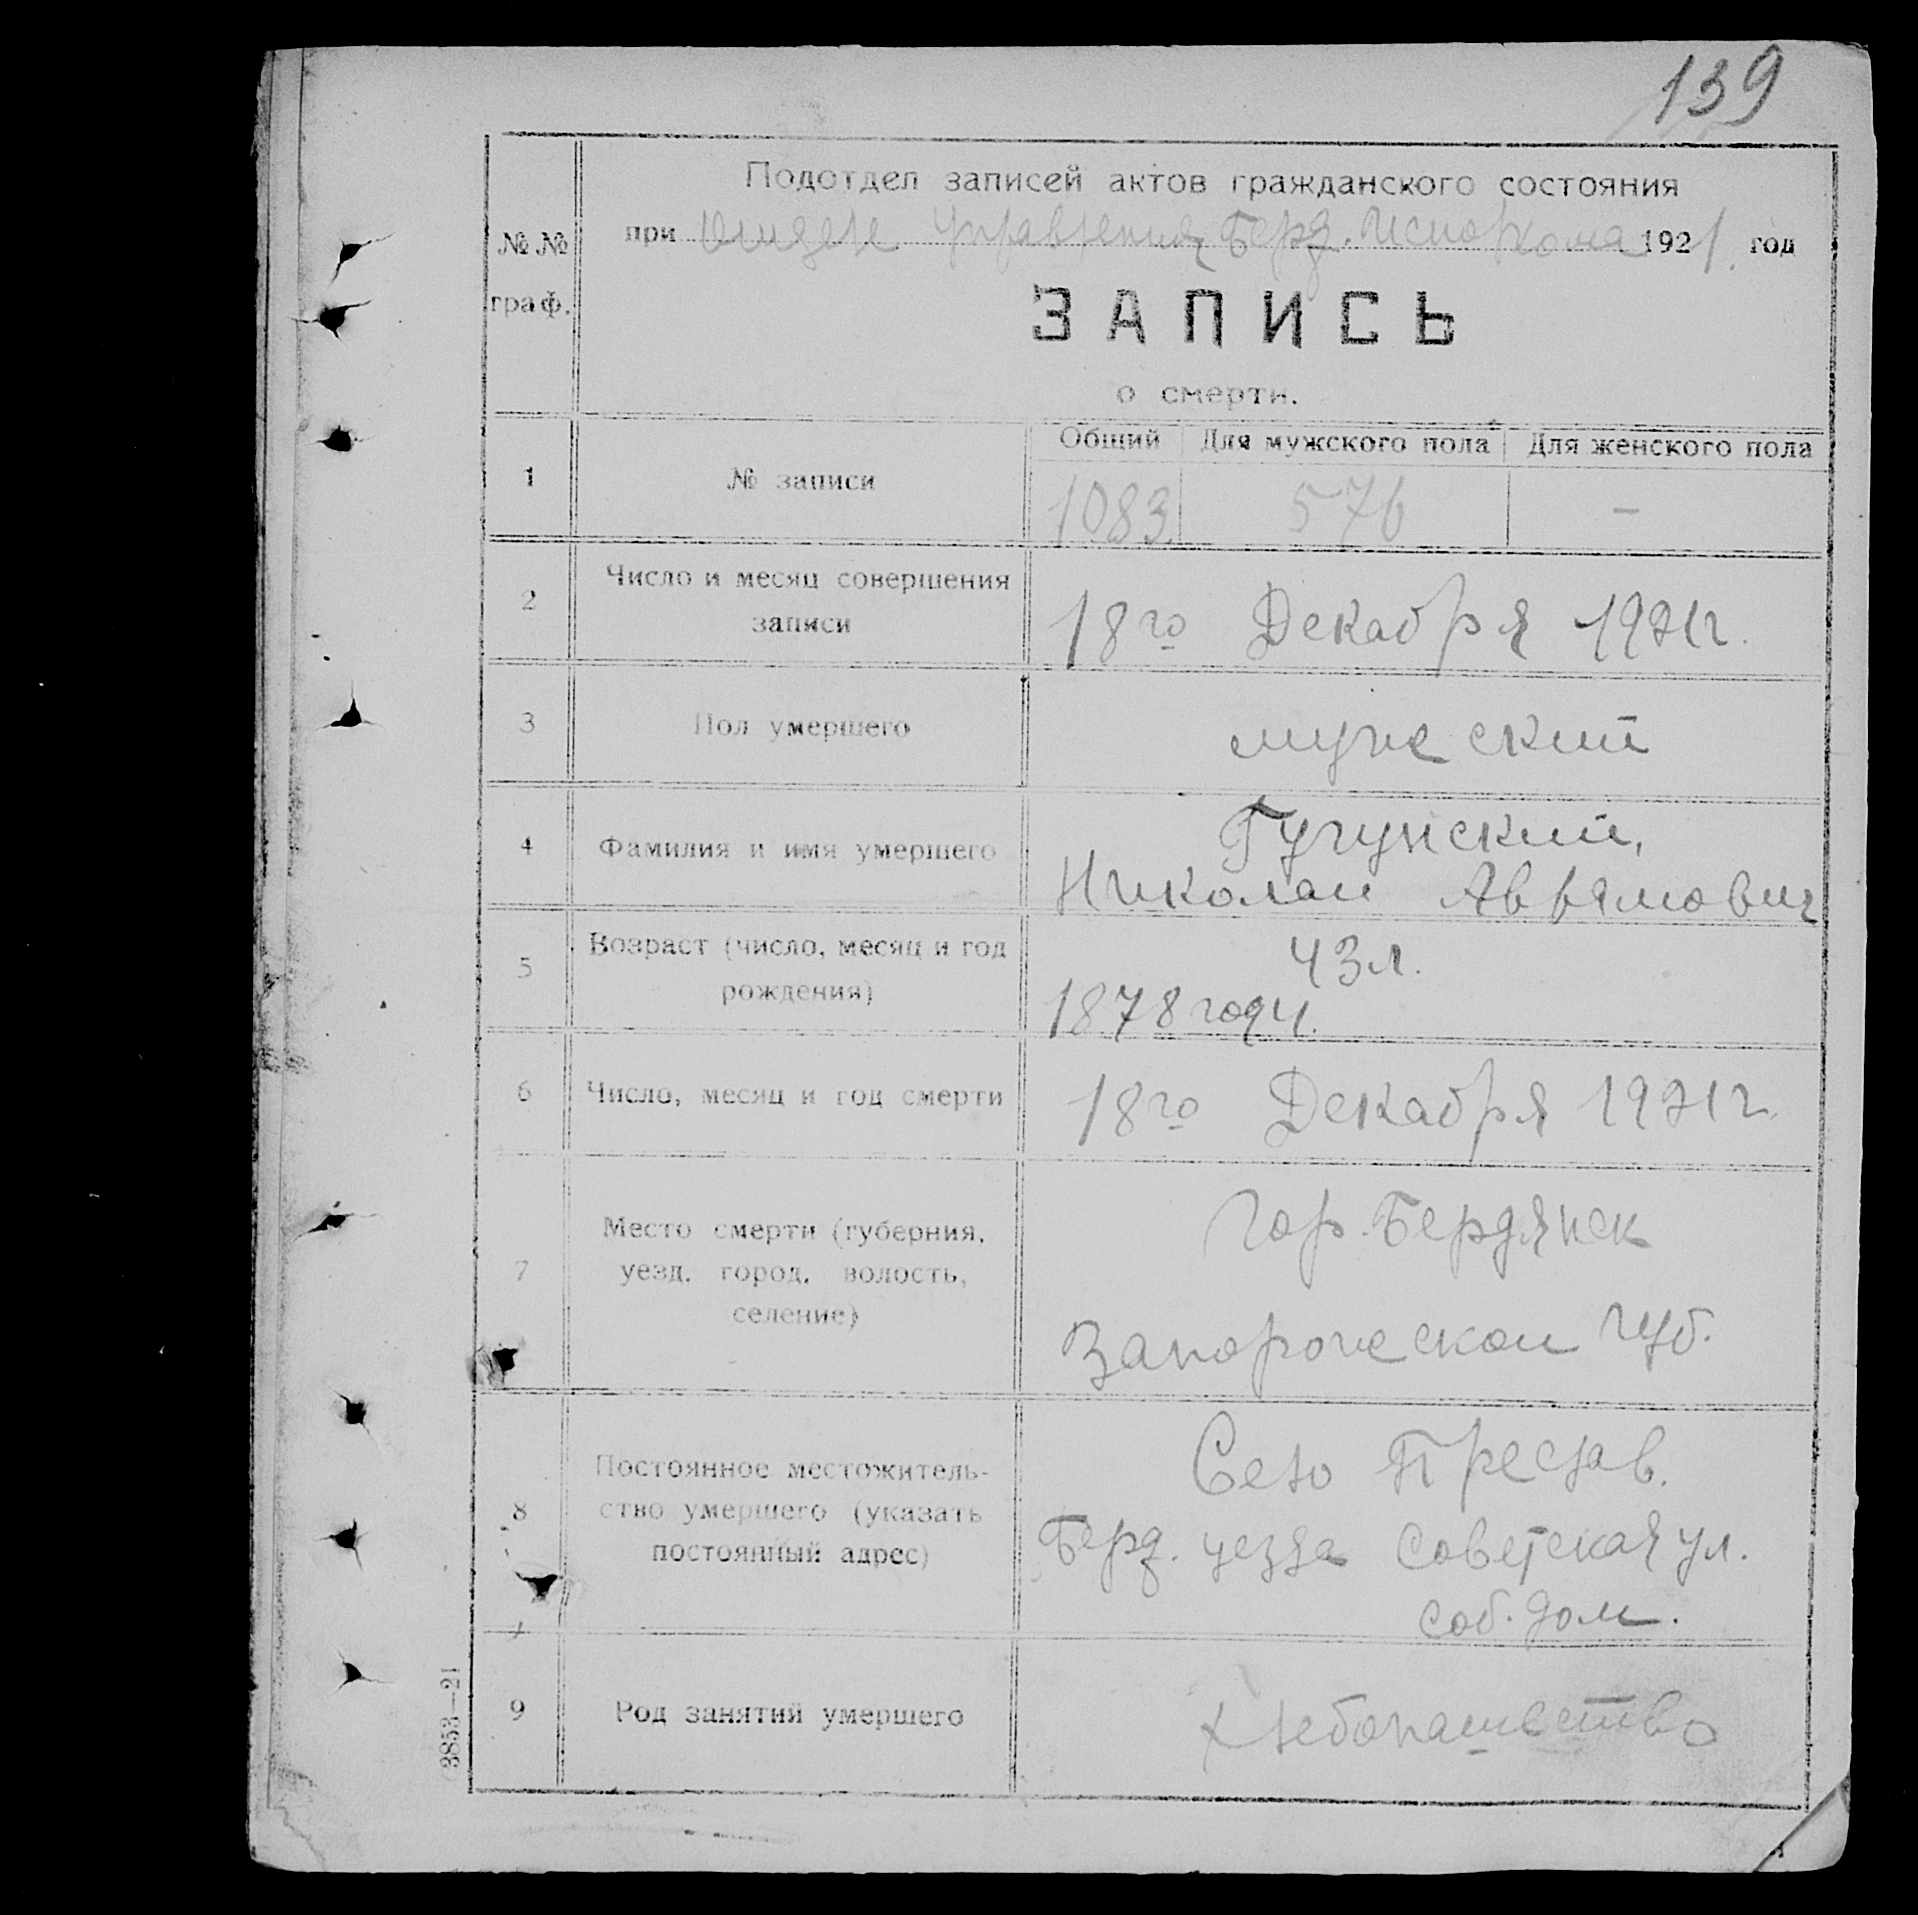 139
Подотдел записей актов гражданского состояния
при Отделе Управления Берд. Исполкома 1921. год
№ № граф.
ЗАПИСЬ
о смерти.
Общий Для мужского пола Для женского пола
1 № записи 1083 576 -
2 Число и месяц совершения
записи
18го Декабря 1921г.
3 Пол умершего мужеский
4 Фамилия и имя умершего
Николай
5 Возраст (число, месяц и год
рождения)
43 л.
1878 году.
6 Число, месяц и год смерти 18го Декабря 1921г.
7 Место смерти (губерния,
уезд, город, волость,
селение)
Гор. Бердянск
Запорожеской Губ.
8 Постоянное местожитель-
ство умершего (указать
постоянный адрес)
Село Преслав.
Берд. уезда Советская ул.
соб. дом.
9 Род занятий умершего Хлебопашество
3853—21